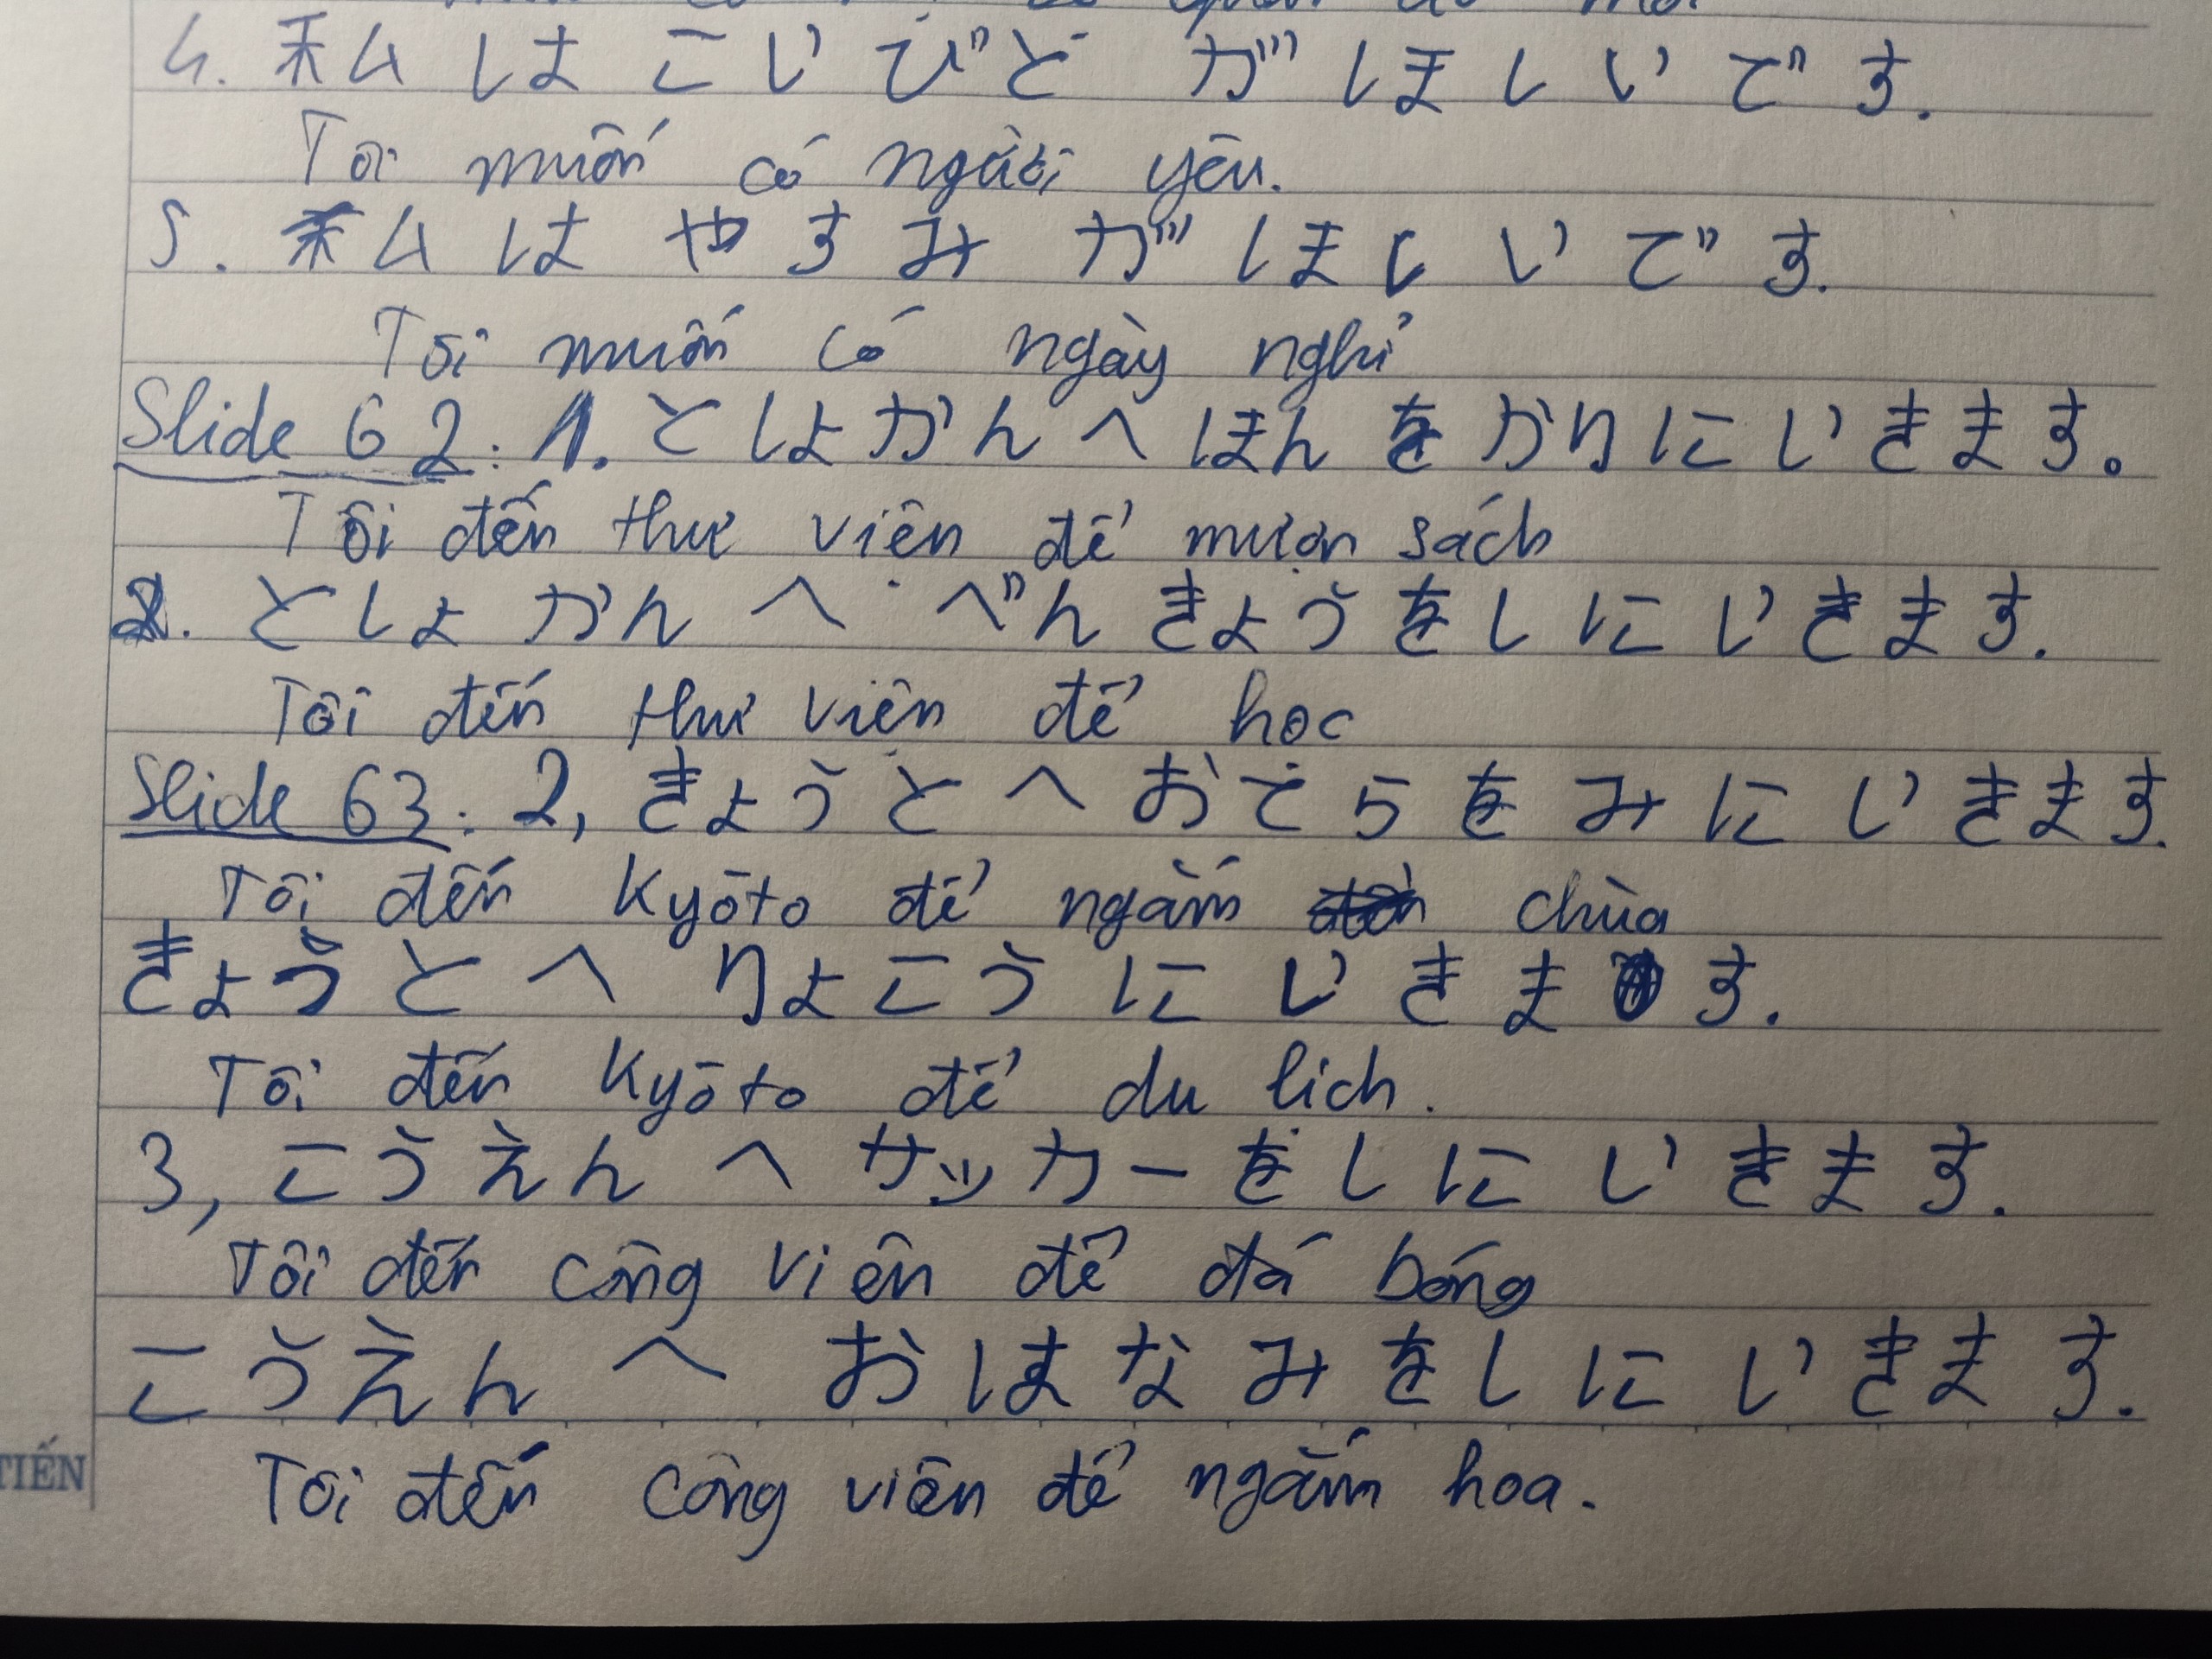 4. 私はこいびとがほしいです.
Tôi muốn có người yêu.
5. 私はやすみがほしいです.
Tôi muốn có ngày nghỉ
Slide 62: 1. としょかんへほんをかりにいきます。
Tôi đến thư viện để mượn sách
2. としょかんへべんきょうをしにいきます.
Tôi đến thư viện để học
Slide 63: 2, きょうとへおてらをみにいきます.
Tôi đến Kyōto để ngắm chùa
きょうとへりょこうにいきます.
Tôi đến Kyōto để du lich.
3, こうえんへサッカーをしにいきます.
Tôi đến công viên để đá bóng
こうえんへおはなみをしにいきます.
Tôi đến công viên để ngắm hoa.
TIẾN